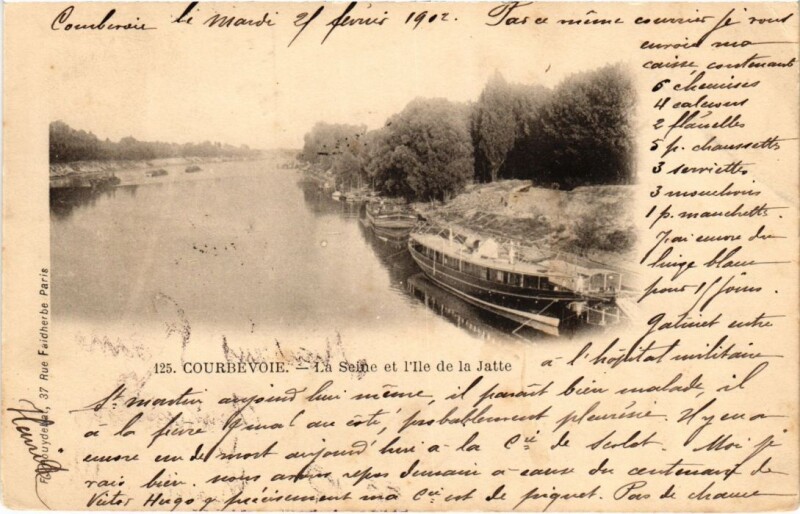 Courbevoie le Mardi 25 février 1902. Par ce même courrier je vous
envoie ma
caisse contenant
6 chemises
4 calecons
2 flanelles
5 p. chaussettes
3 serviettes
3 mouchoirs
1 p. manchettes.
J'ai encore du
linge blanc
pour 15 jours.
Gatinet entre
à l'hôpital militaire
125. COURBEVOIE. - La Seine et l'Ile de la Jatte
St martin aujourd'hui même, il parait bien malade, il
a la fièvre & mal au côté, probablement pleurésie. Il y en a
encore un de mort aujourd'hui à la Cie de
Moi je
vais bien. nous avons repos demain à cause du centenaire de
Victor Hugo & précisement ma Cie est de piquet. Pas de chance
Henri
37 Rue Faidherbe Paris